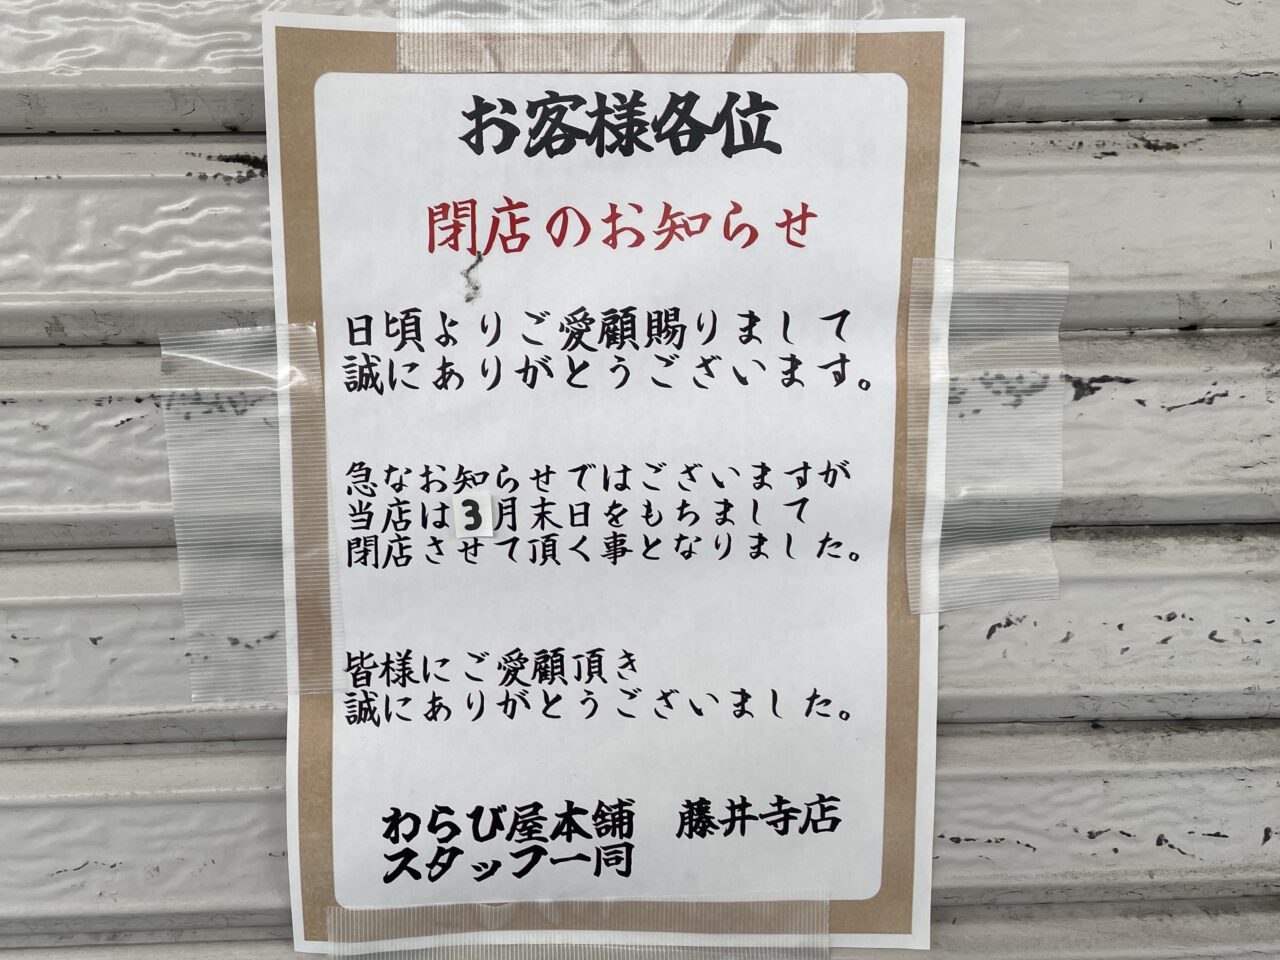 お客様各位
閉店のお知らせ
日頃よりご愛顧賜りまして
誠にありがとうございます。
急なお知らせではございますが
当店は3月末日をもちまして
閉店させて頂く事となりました。
皆様にご愛顧頂き
誠にありがとうございました。
わらび屋本舗　藤井寺店
スタッフ一同